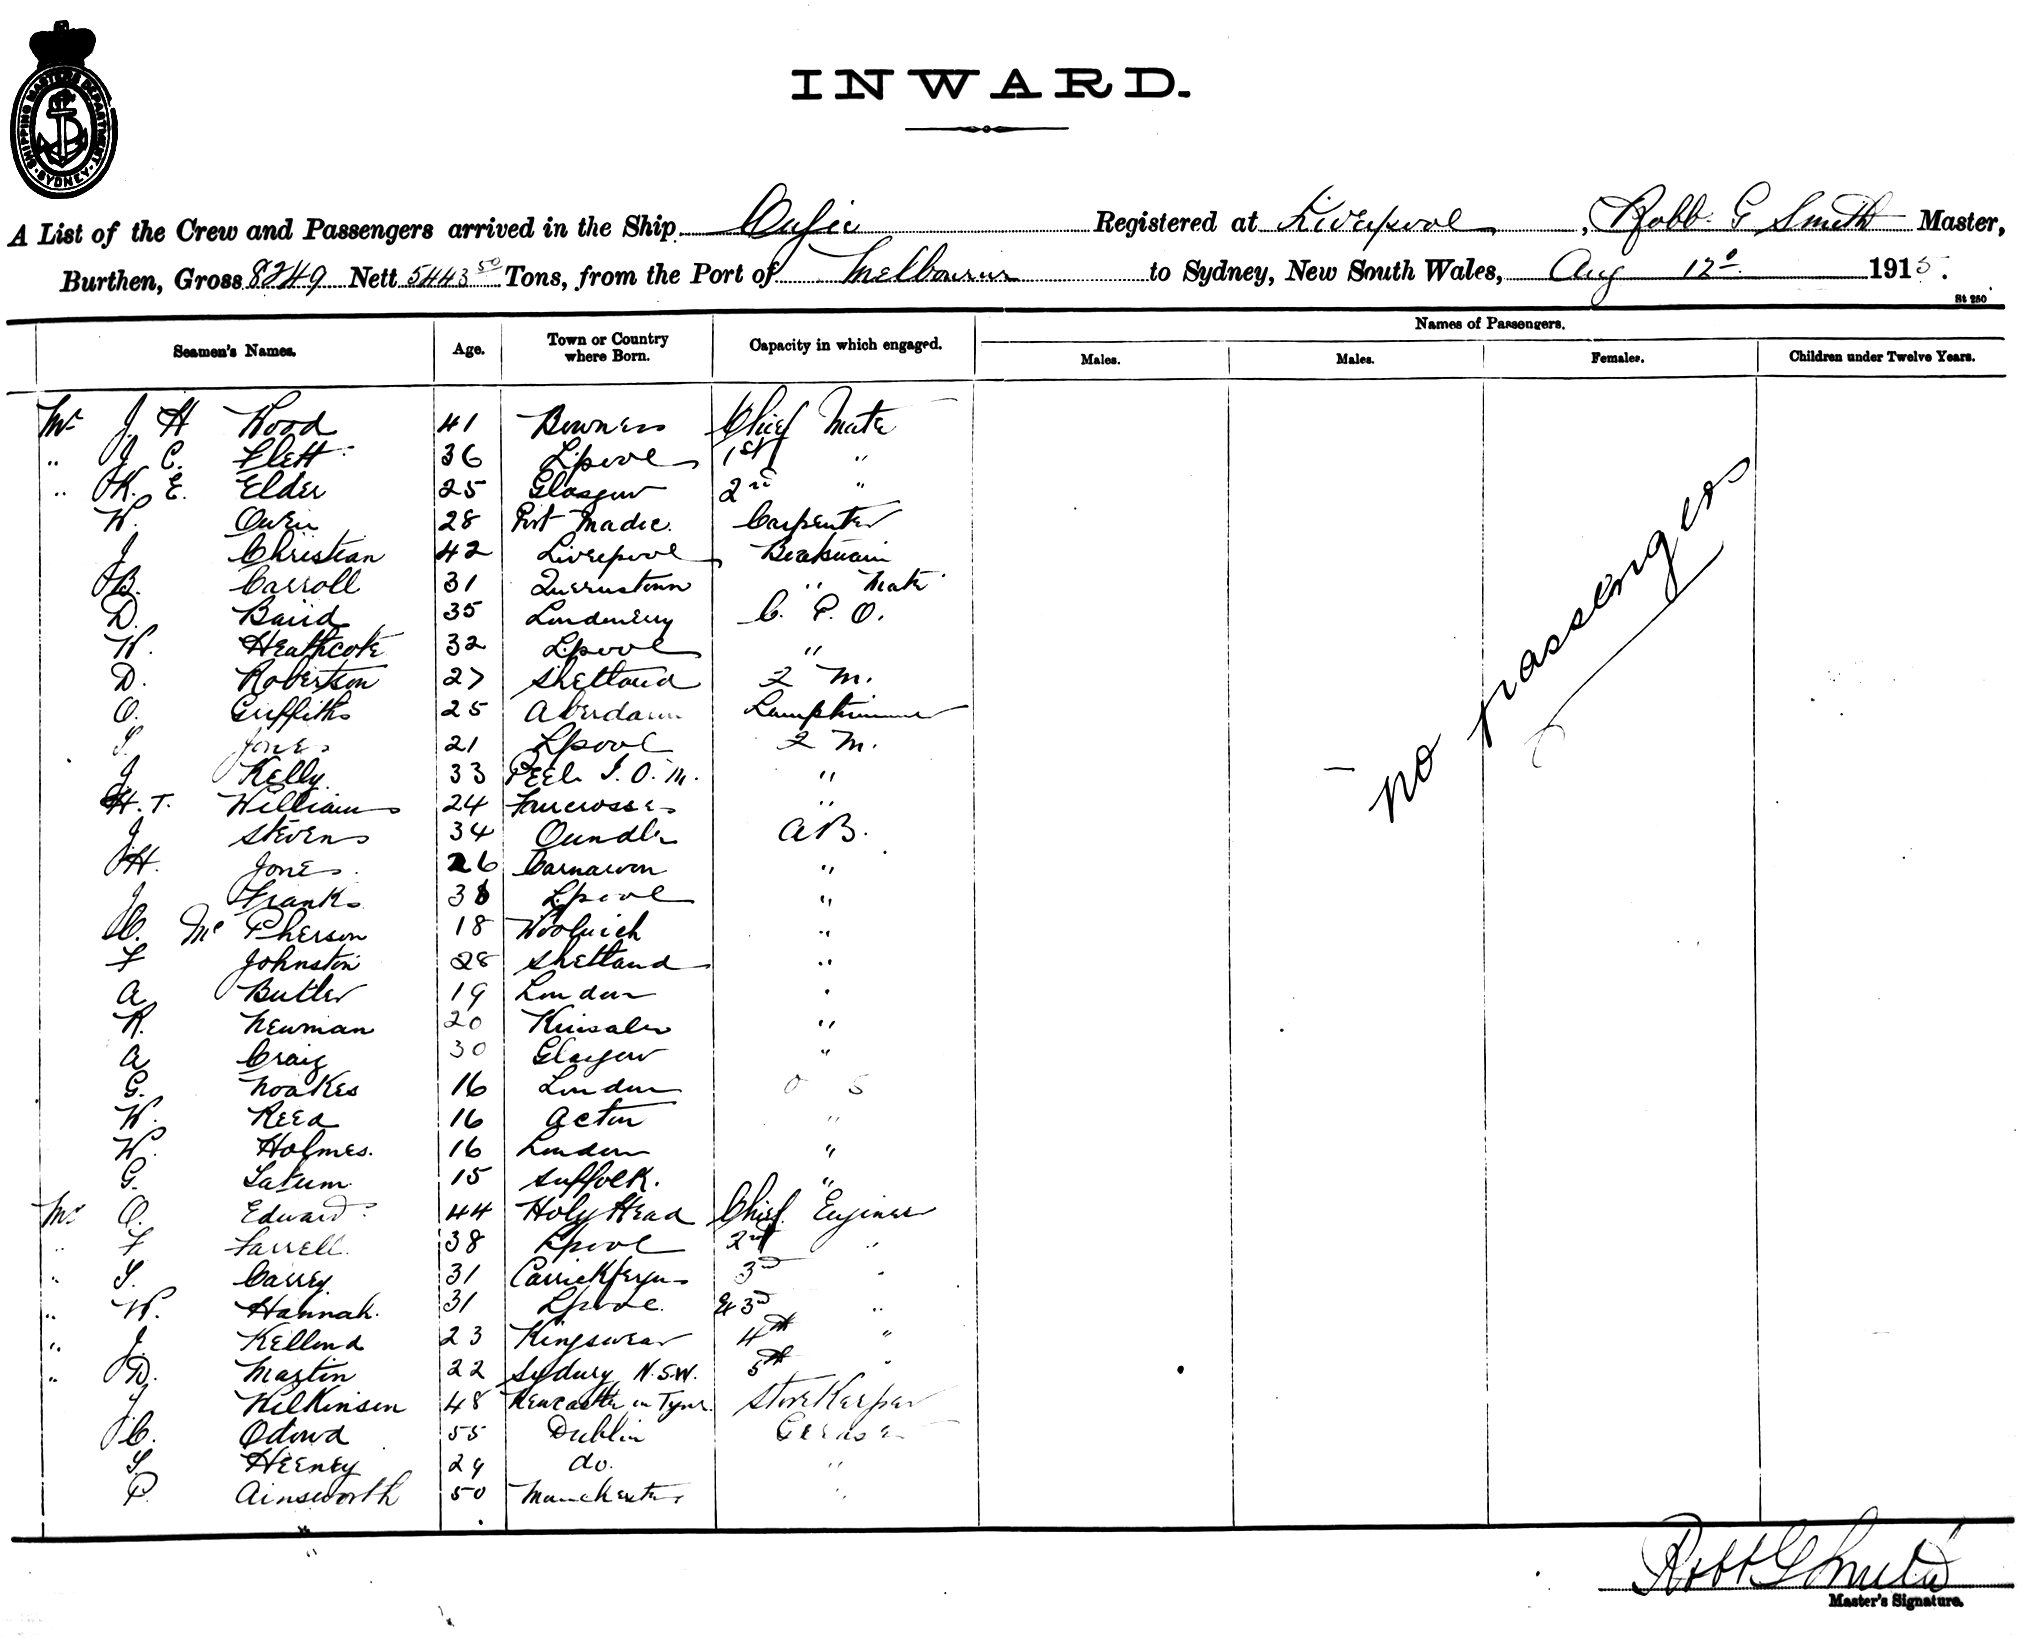 SHIPPING MASTERS DEPARTMENT · SYDNEY ·
INWARD.
A List of the Crew and Passengers arrived in the Ship Cufic Registered at Liverpool, Robt. G Smith Master,
Burthen, Gross 8249 Nett 5443 50 Tons, from the Port of Melbourne to Sydney, New South Wales, Aug 12th 1915.
St 250
Names of Passengers.
Seamen's Names. Age. Town or Country where Born. Capacity in which engaged. Males. Males. Females. Children under Twelve Years.
Mr J H Wood 41 Bowness Chief Mate
" J C. Flett 36 L.pool 1st "
" K. E. Elder 25 Glasgow 2nd "
W. Owen 28 Port Madoc. Carpenter
J Christian 42 Liverpool Boatswain
B. Carroll 31 Queenstown " Mate
D. Baird 35 Londonderry C. P. O.
W. Heathcote 32 L.pool "
D. Robertson 27 Shetland 2 M.
O. Griffiths 25 Aberdaron Lamptrimmer
Jones 21 Lpool 2 M.
J Kelly 33 Peel I. O. M. "
H. T. Williams 24 "
J. Stevens 34 Oundle AB.
H. Jones 26 Carnarvon "
J Franks 38 L.pool "
C. McPherson 18 Woolwich "
F Johnston 28 Shetland "
A Butler 19 London "
R. Newman 20 Kinsale "
A Craig 30 Glasgow "
G. Noakes 16 London O S
W. Reed 16 Acton "
W. Holmes. 16 London "
G. Tatum 15 Suffolk. "
Mr O. Edwards 44 Holy Head Chief Engineer
" F Farrell. 38 Lpool 2nd "
" Carrey 31 Carrickfergus 3rd "
" W. Hannah. 31 Lpool. 3rd "
" J. Kellond 23 Kingswear 4th "
" D. Martin 22 Sydney N.S.W. 5th "
J Wilkinson 48 Newcastle on Tyne. Storekeeper
C. Odowd 55 Dublin Greaser
Heeney 29 do. "
P. Ainsworth 50 Manchester "
no passengers
Robt G Smith
Master's Signature.